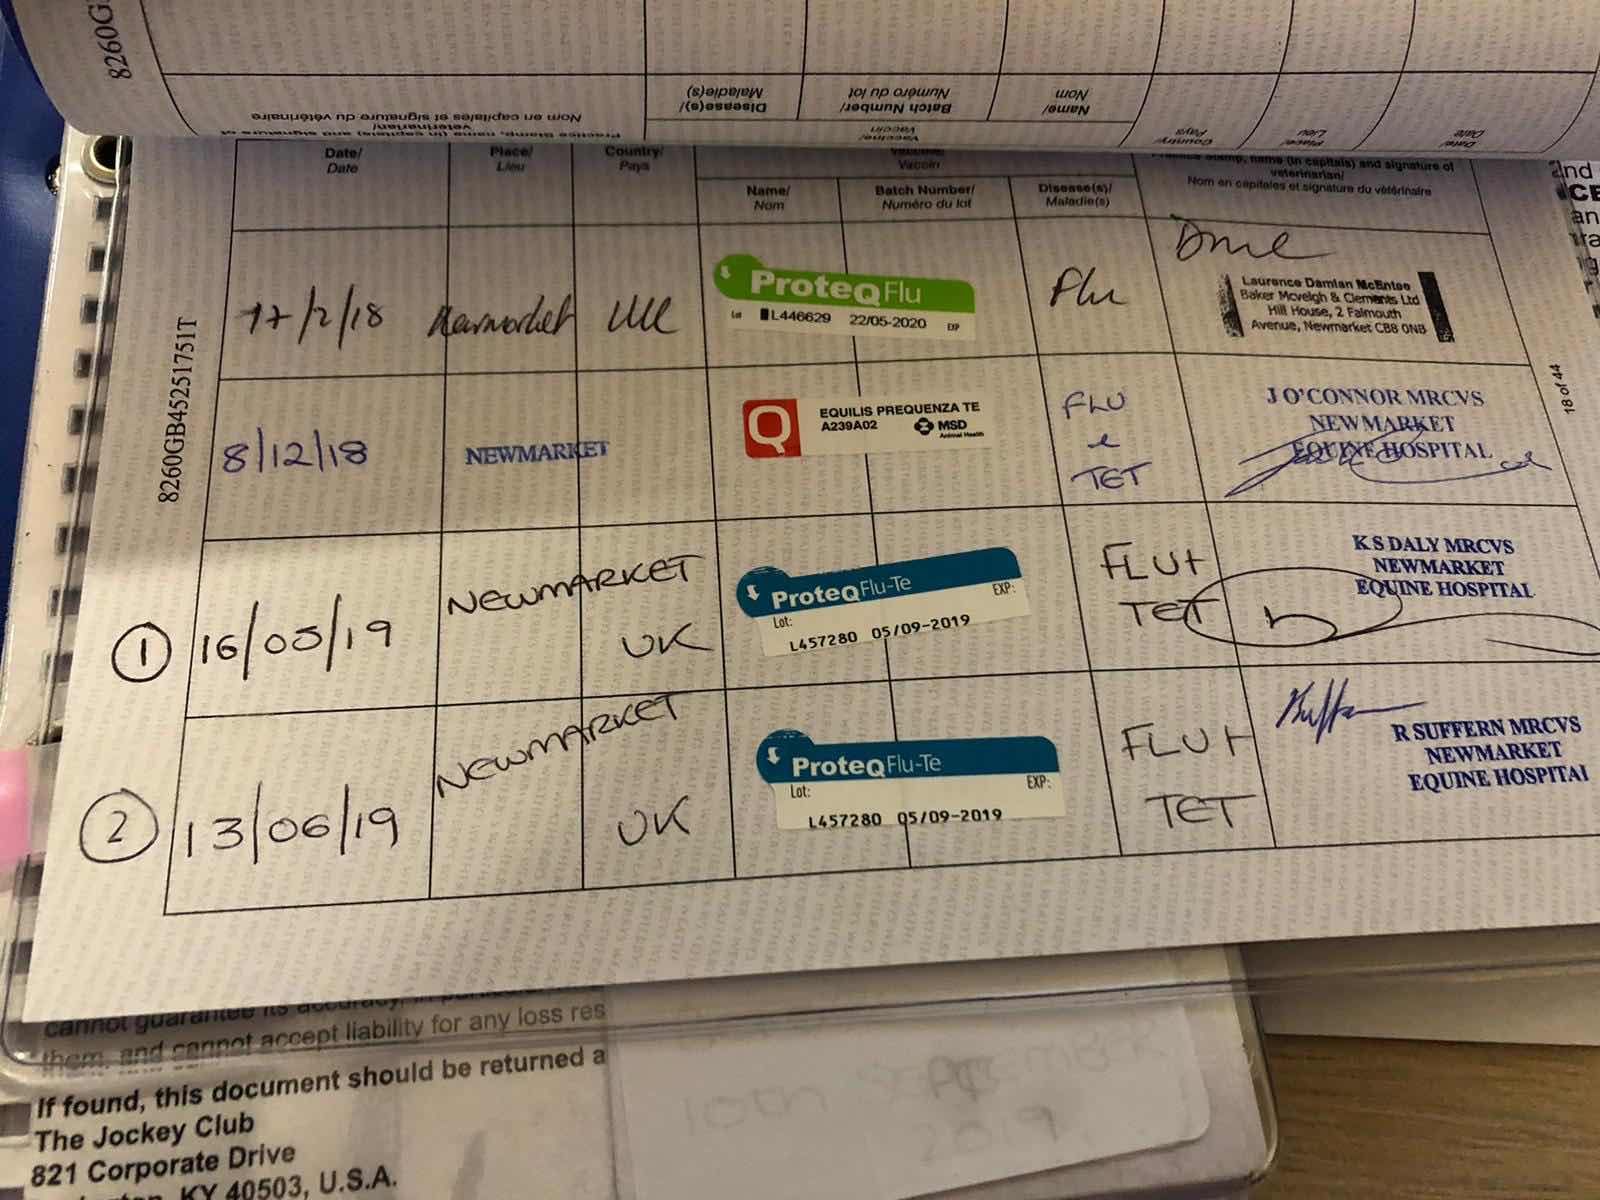 8260G
Maladie(s)
Disease(s)/
Numéro du lot
Batch Number/
Nom
Name/
Pays
Country/
Lieu
Place/
Date
Date/
Nom en capitales et signature du vétérinaire
veterinarian/
Practice Stamp, name (in capitals) and signature of
Vaccin
Vaccine/
Date/
Date
Place/
Lieu
Country/
Pays
Vaccine/
Vaccin
Practice Stamp, name (in capitals) and signature of
veterinarian/
Nom en capitales et signature du vétérinaire
Name/
Nom
Batch Number/
Numéro du lot
Disease(s)/
Maladie(s)
17/2/18
Newmarket
UK
ProteqFlu
Lot L446629 22/05-2020 EXP
Flu
Laurence Damian McEntee
Baker Mcveigh & Clements Ltd
Hill House, 2 Falmouth
Avenue, Newmarket CB8 0NB
8260GB45251751T
18 of 44
8/12/18
NEWMARKET
Q
EQUILIS PREQUENZA TE
A239A02
MSD
Animal Health
FLU
TET
J O'CONNOR MRCVS
NEWMARKET
EQUINE HOSPITAL
1
16/05/19
NEWMARKET
UK
ProteqFlu-Te
Lot: EXP:
L457280 05/09-2019
FLU+
TET
K S DALY MRCVS
NEWMARKET
EQUINE HOSPITAL
2
13/06/19
NEWMARKET
UK
ProteqFlu-Te
Lot: EXP:
L457280 05/09-2019
FLU+
TET
R SUFFERN MRCVS
NEWMARKET
EQUINE HOSPITAL
cannot guarantee its accuracy,
them, and cannot accept liability for any loss res
If found, this document should be returned a
The Jockey Club
821 Corporate Drive
KY 40503, U.S.A.